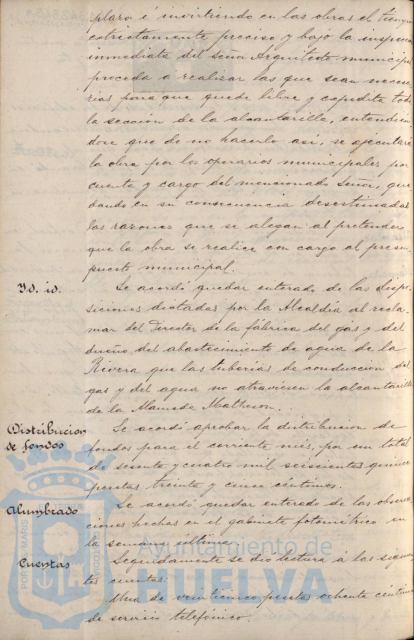 plazo é invirtiendo en las obras el tiempo
estrictamente preciso y bajo la inspección
inmediata del señor Arquitecto municipal
proceda á realizar las que sean necesa-
rias para que quede libre y expedita toda
la sección de la alcantarilla, entendién-
dose que de no hacerlo así, se ejecutará
la obra por los operarios municipales por
cuenta y cargo del mencionado Señor, que-
dando en su consecuencia desestimadas
las razones que se alegan al pretender
que la obra se realice con cargo al presu-
puesto municipal.
Yd. id.
Se acordó quedar enterado de las dispo-
siciones dictadas por la Alcaldía al recla-
mar del Director de la fábrica del gas y del
dueño del abastecimiento de agua de la
Rivera que las tuberías de conducción del
gas y del agua no atraviesen la alcantarilla
de la Matheson.
Distribucion
de fondos
Se acordó aprobar la distribucion de
fondos para el corriente mes, por un total
de sesenta y cuatro mil seiscientas quince
pesetas treinta y cinco céntimos.
Alumbrado
Se acordó quedar enterado de las observa-
ciones hechas en el gabinete fotométrico en
la semana última.
Cuentas
Seguidamente se dio lectura á las siguien-
tes cuentas:
Una de veinticinco pesetas ochenta céntimos
de servicio telefónico.
PORTUS MARIS
Ayuntamiento de
HUELVA